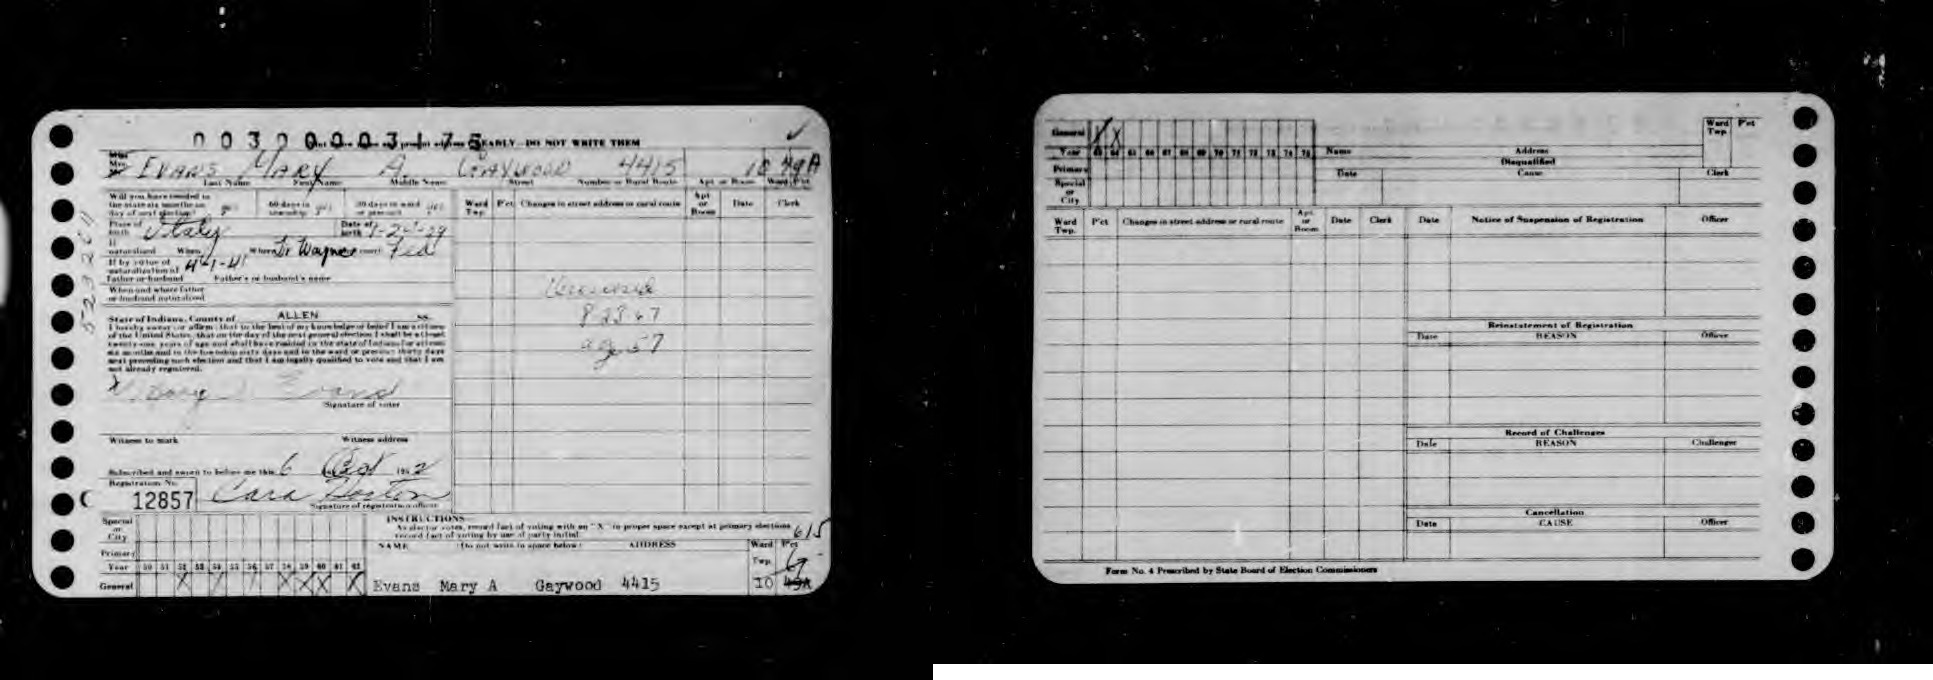 0 0 3 0 0 0 0 3 1 7 5
EARLY—DO NOT WRITE THEM
Mrs. EVANS MARY A. GAYWOOD 4415 10 49A
Last Name First Name Middle Name Street Number or Rural Route Apt. or Room Ward Pct
Will you have resided in the state six months on day of next election? yes 60 days in township yes 30 days in ward or precinct yes
Place of birth Italy Date of birth
If naturalized When Where Ft Wayne court Fed
If by virtue of naturalization of 4-1-41
Father or husband Father's or husband's name
When and where father or husband naturalized
State of Indiana, County of ALLEN ss.
I hereby swear (or affirm) that to the best of my knowledge or belief I am a citizen
of the United States, that on the day of the next general election I shall be at least
twenty-one years of age and shall have resided in the state of Indiana for at least
six months and in the township sixty days and in the ward or precinct thirty days
next preceding such election and that I am legally qualified to vote and that I am
not already registered.
X Mary A. Evans
Signature of voter
Witness to mark Witness address
Subscribed and sworn to before me this 6 Oct 1952
Registration No.
12857 Cara Horton
Signature of registration officer
Ward Twp. P'ct Changes in street address or rural route Apt. or Room Date Clerk
8 23 67
age 57
INSTRUCTIONS—
As elector votes, record fact of voting with an "X" in proper space except at primary elections
record fact of voting by use of party initial.
615
Special or City
Primary
Year 50 51 52 53 54 55 56 57 58 59 60 61 62
General X X X X X X X
NAME (Do not write in space below) ADDRESS Ward Twp. P'ct
Evans Mary A Gaywood 4415 10 49A
General X X
Year 63 64 65 66 67 68 69 70 71 72 73 74 75
Primary
Special or City
Name Address Ward Twp. P'ct
Disqualified
Date Cause Clerk
Ward Twp. P'ct Changes in street address or rural route Apt. or Room Date Clerk
Date Notice of Suspension of Registration Officer
Reinstatement of Registration
Date REASON Officer
Record of Challenges
Date REASON Challenger
Cancellation
Date CAUSE Officer
Form No. 4 Prescribed by State Board of Election Commissioners